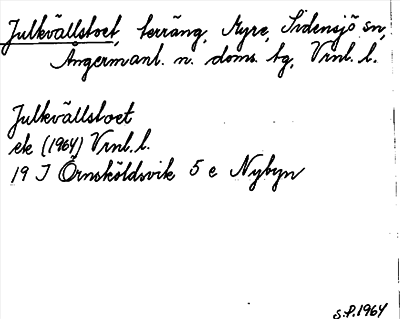 Julkvällstoet, terräng, Myre, Sidensjö sn,
Ångermanl. n. doms. tg, Vrnl. l.
Julkvällstoet
ek (1964) Vrnl. l.
19 I Örnsköldsvik 5 e Nybyn
S.P. 1964